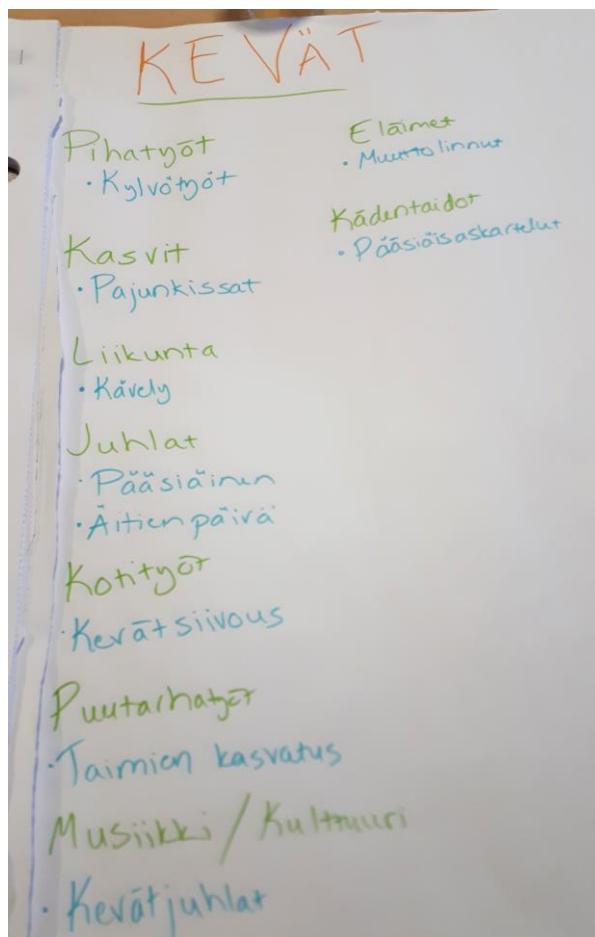 KEVÄT
Pihatyöt
• Kylvötyöt
Kasvit
• Pajunkissat
Liikunta
• Kävely
Juhlat
• Pääsiäinen
• Äitienpäivä
Kotityöt
• Kevätsiivous
Puutarhatyöt
• Taimien kasvatus
Musiikki / Kulttuuri
• Kevätjuhlat
Eläimet
• Muuttolinnut
Kädentaidot
• Pääsiäisaskartelut